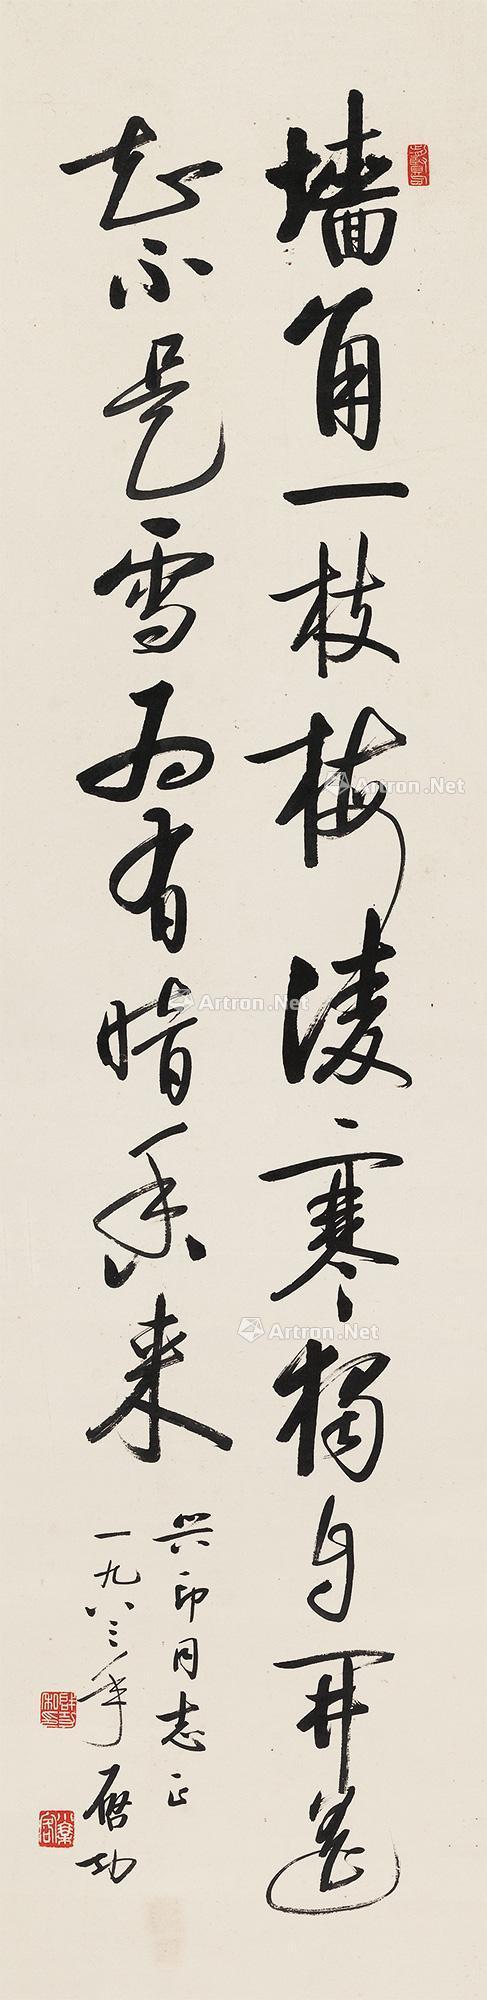 墙角一枝梅凌寒独自开遥
知不是雪为有暗香来
兴印同志正
一九八三年 启功
Artron.Net
Artron.Net
Artron.Net